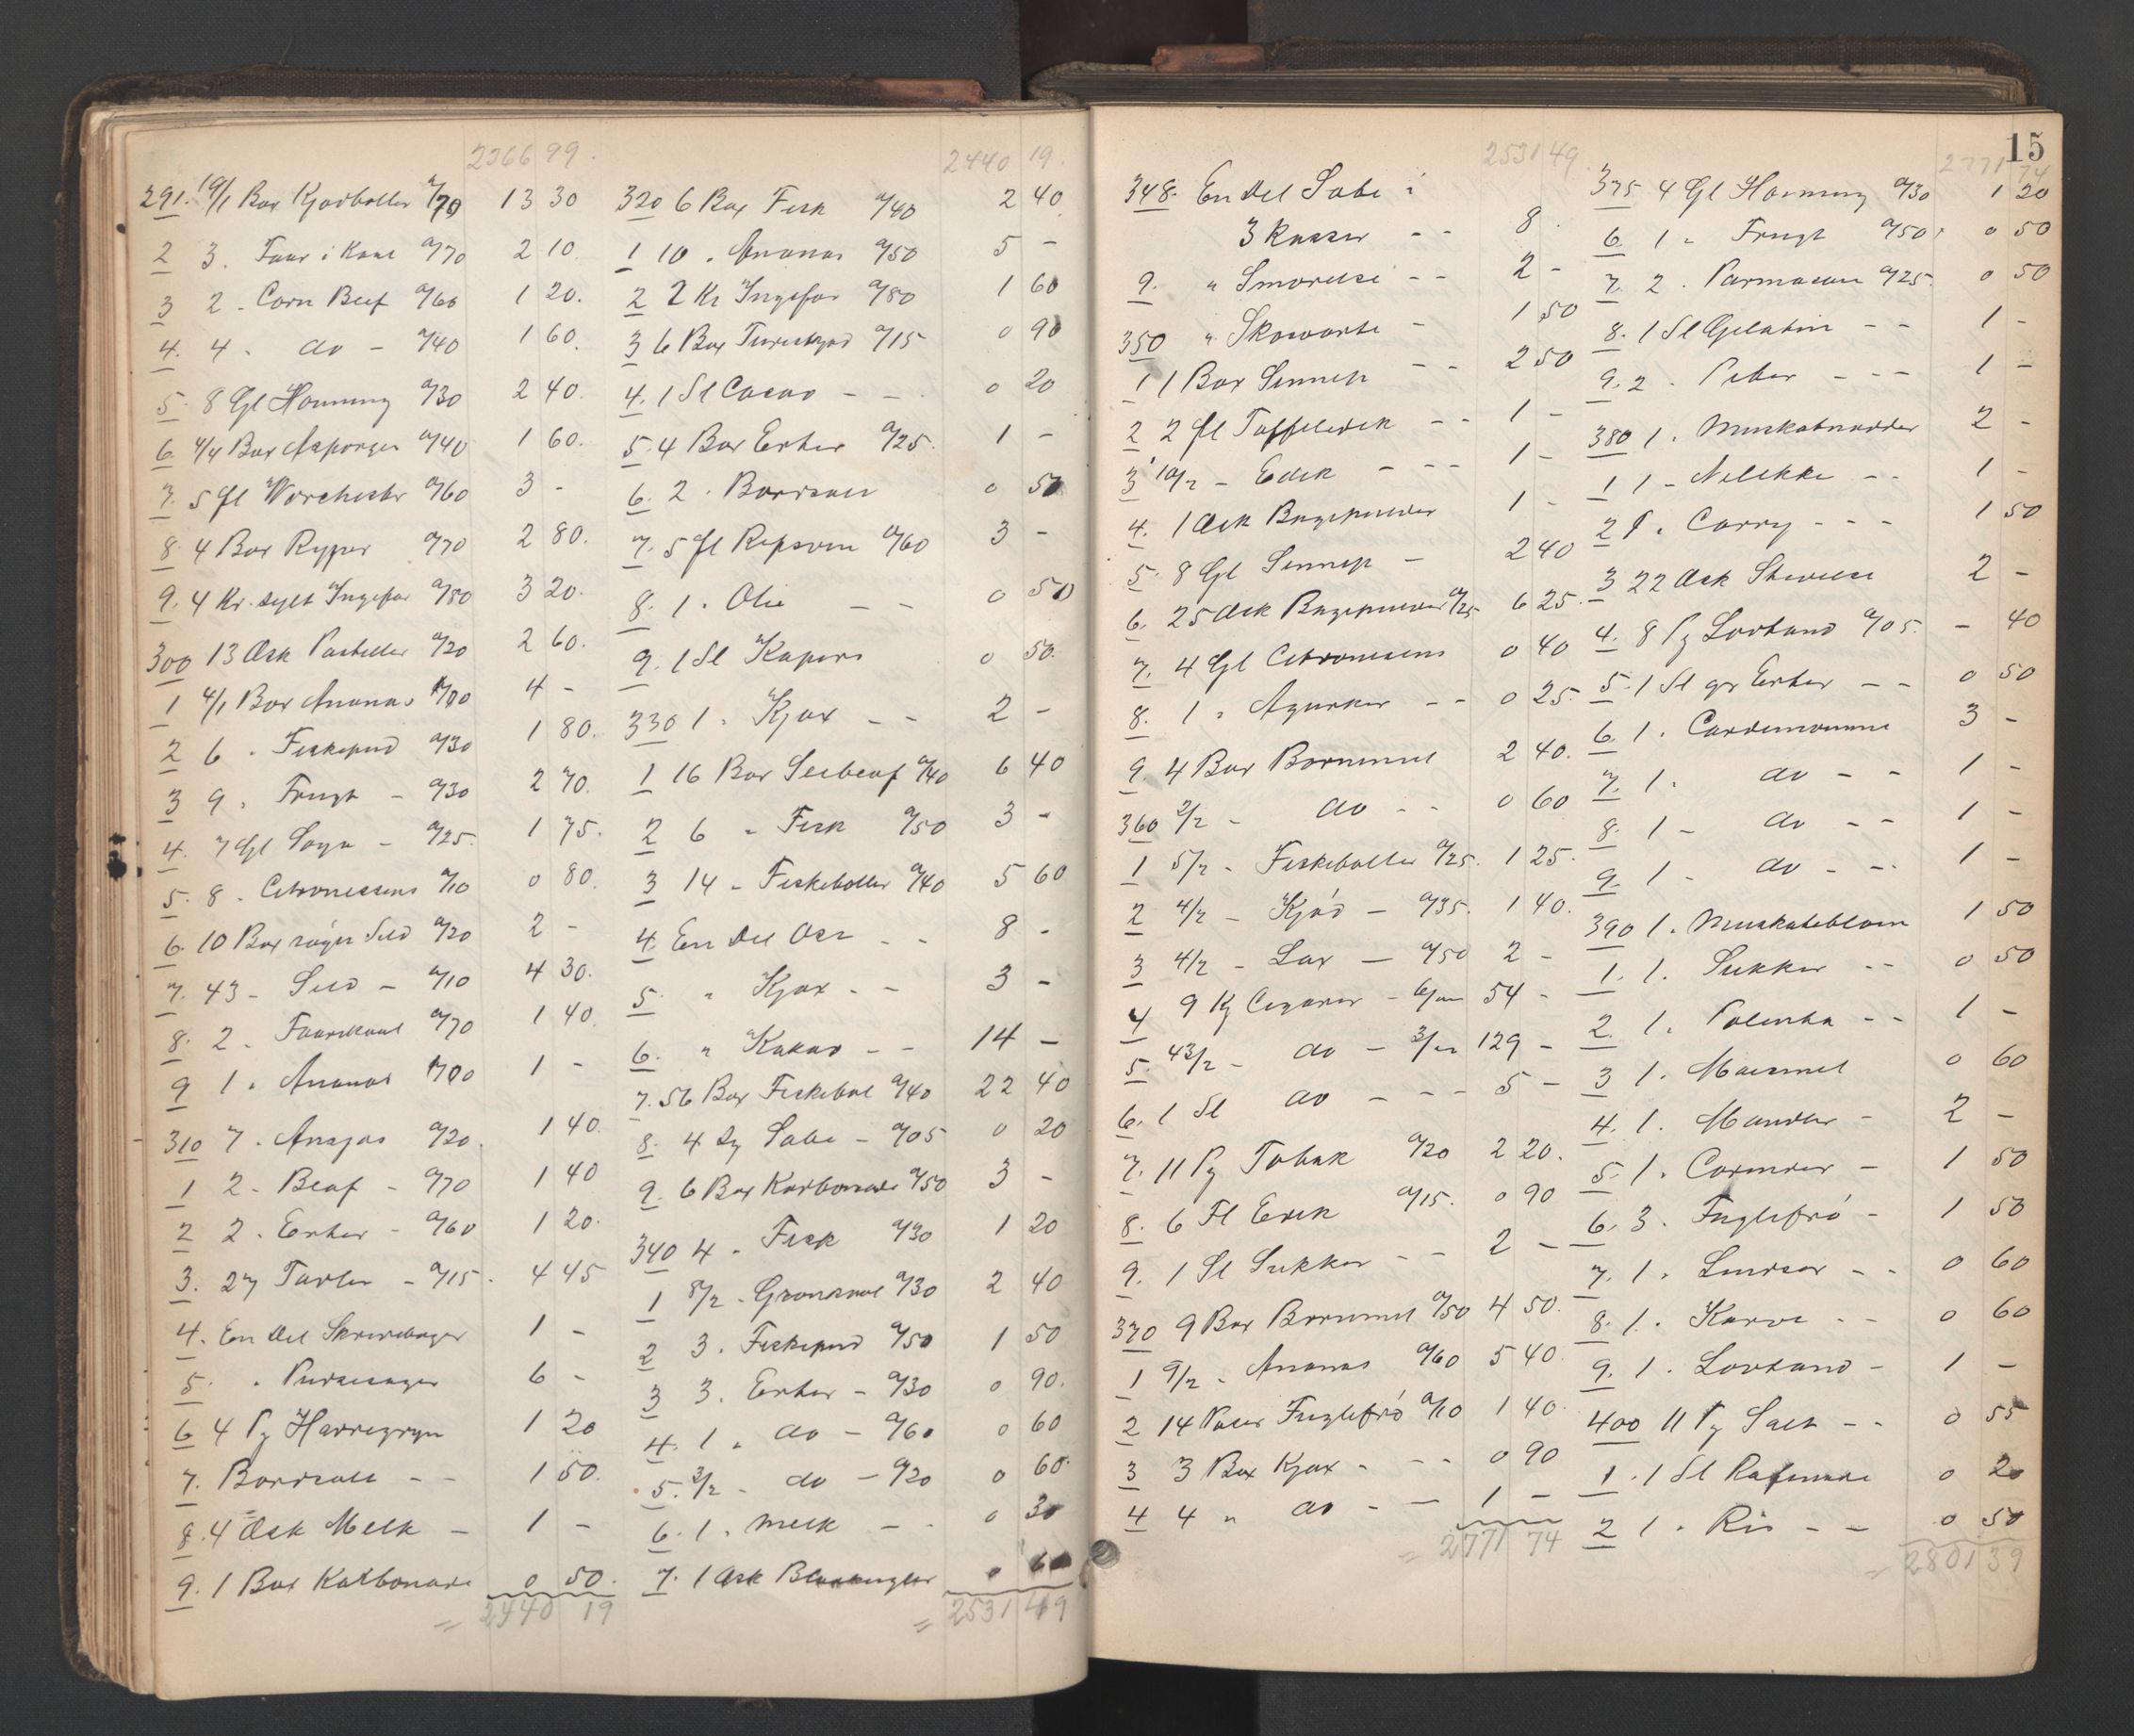 2366 99.
291. 19/1 Box Kjødboller a/70 13 30
2 3. Faar i Kaal a/70 2 10.
3 2 - Corn Beef a/60 1 20.
4. 4 - do - a/40 1 60.
5. 8 Gl Honning a/30 2 40.
6. 4/4 Box Asparges a/40 1 60.
7. 5 fl Worchester a/60 3 -
8. 4 Box Ryper a/70 2 80.
9. 4 Kr. sylt Ingefær a/80 3 20.
300 13 Æsk Pastiller a/20 2 60.
1 4/1 Box Ananas 4 -
2 6 . Fiskepud a/30 1 80.
3 9 . Frugt - a/30 2 70.
4. 7 Gl Soya - a/25. 1 75.
5. 8 . Citronessens a/10 0 80.
6. 10 Box røget Sild a/20 2 -
7. 43 - Sild - a/10 4 30.
8. 2 . Faarikaal a/70 1 40
9 1 . Ananas 1 -
310 7 . Ansjos a/20. 1 40.
1 2 - Beaf - a/70 1 40
2 2 . Erter - a/60 1 20.
3. 27 Tavler - a/15. 4 45
4. En Del Skrivebøger 1 -
5. . Pudsesager 6 -
6 4 Pg Havregryn 1 20
7. Bordsalt - - 1 50.
8. 4 Æsk Melk - 1 -
9. 1 Box Karbonade 0 50.
= 2440 19
2440 19.
320 6 Box Fisk a/40 2 40
1 10 . Ananas a/50 5 -
2 2 Kr Ingefær a/80 1 60
3 6 Box a/15 0 90
4. 1 Sl Cacao - - 0 20
5. 4 Box Erter a/25. 1 -
6. 2 . Bordsalt 0 50
7. 5 fl Ripsvin a/60 3 -
8. 1 . Olie - - 0 50
9. 1 Sl Kapers 0 50.
330 1 . Kjæx - - 2 -
1 16 Box Seibeaf a/40 6 40
2 6 - Fisk a/50 3 -
3 14 - Fiskeboller a/40 5 60
4. En Del Ost - - 8 -
5. " Kjæx - - 3 -
6. " Kakao - - 14 -
7. 56 Box Fiskebol a/40 22 40
8. 4 Sæbe - a/05 0 20
9. 6 Box Karbonade a/50 3 -
340 4 - Fisk a/30 1 20
1 8/2 - Grønsaal a/30 2 40
2 3 . Fiskepud a/50 1 50
3 3 . Erter - a/30 0 90.
4. 1 . do - a/60 0 60
5. 3/2 - do - a/20 0 60.
6. 1 . Melk - - 0 30
7. 1 Æsk 0 60
= 2531 49
2531 49.
348. En Del Sæbe i
3 Kasser - - 8.
9. " Smørelse - - 2 -
350 " Skosværte - 1 50
1 1 Box Sennep - - 2 50
2 2 fl Taffeledik - - 1 -
3 10/2 - Edik - - - 1 -
4. 1 Æsk Bagepulver 1 -
5. 8 Gl Sennep - 2 40
6. 25 Æsk Bagepulver a/25 6 25.
7. 4 Gl Citronessens 0 40
8. 1 . Agurker - - 0 25.
9 4 Box Barnemel 2 40.
360 2/2 - do - - 0 60
1 5/2 - Fiskeboller a/25. 1 25.
2 4/2 - Kjød - a/35. 1 40.
3 4/2 - Lax - a/50 2 -
4 9 Kg Cigarer - 54 -
5. 43/2 - do - 129 -
6. 1 Sl do - - - 5 -
7. 11 Pg Tobak a/20 2 20.
8. 6 Fl Edik a/15. 0 90
9. 1 Sl Sukker - - 2 -
370 9 Box Barnemel a/50 4 50.
1 9/2 - Ananas a/60 5 40.
2 14 Poser Fuglefrø a/10 1 40.
3 3 Box Kjæx - - - 0 90
4 4 " do - - 1 -
= 2771 74
15
2771 74
375 4 Gl Honning a/30 1 20
6. 1 - Frugt a/50. 0 50
7. 2 . Parmasan a/25. 0 50
8. 1 Sl Gelatin - - 1 -
9. 2 . Peber - - - 1 -
380 1 . Muskatnødder 2 -
1 1 - Nellikke - - 1 -
2 1 . Carry - - - 1 50
3 22 Æsk Stivelse 2 -
4. 8 Pg Lovtand a/05. - 40
5. 1 Sl gr Erter - - 0 50
6. 1 . Cardemomme 3 -
7. 1 . do - - 1 -
8. 1 - do - - 1 -
9. 1 - do - - 1 -
390 1 . Muskatblom 1 50
1. 1. Sukker - - 0 50
2. 1 . Polenta - - 1 -
3 1 . Maismel 0 60
4. 1 . Mandler - 2 -
5. 1 . Corinder - 1 50
6. 3 . Fuglefrø - 1 50
7. 1 . Lindser - - 0 60
8. 1 . Karve - - 0 60
9. 1 . Lovtand - 1 -
400 11 Pg Salt - - 0 55
1. 1 Sl 0 20
2 1 . Ris - - 0 50
= 2801 39